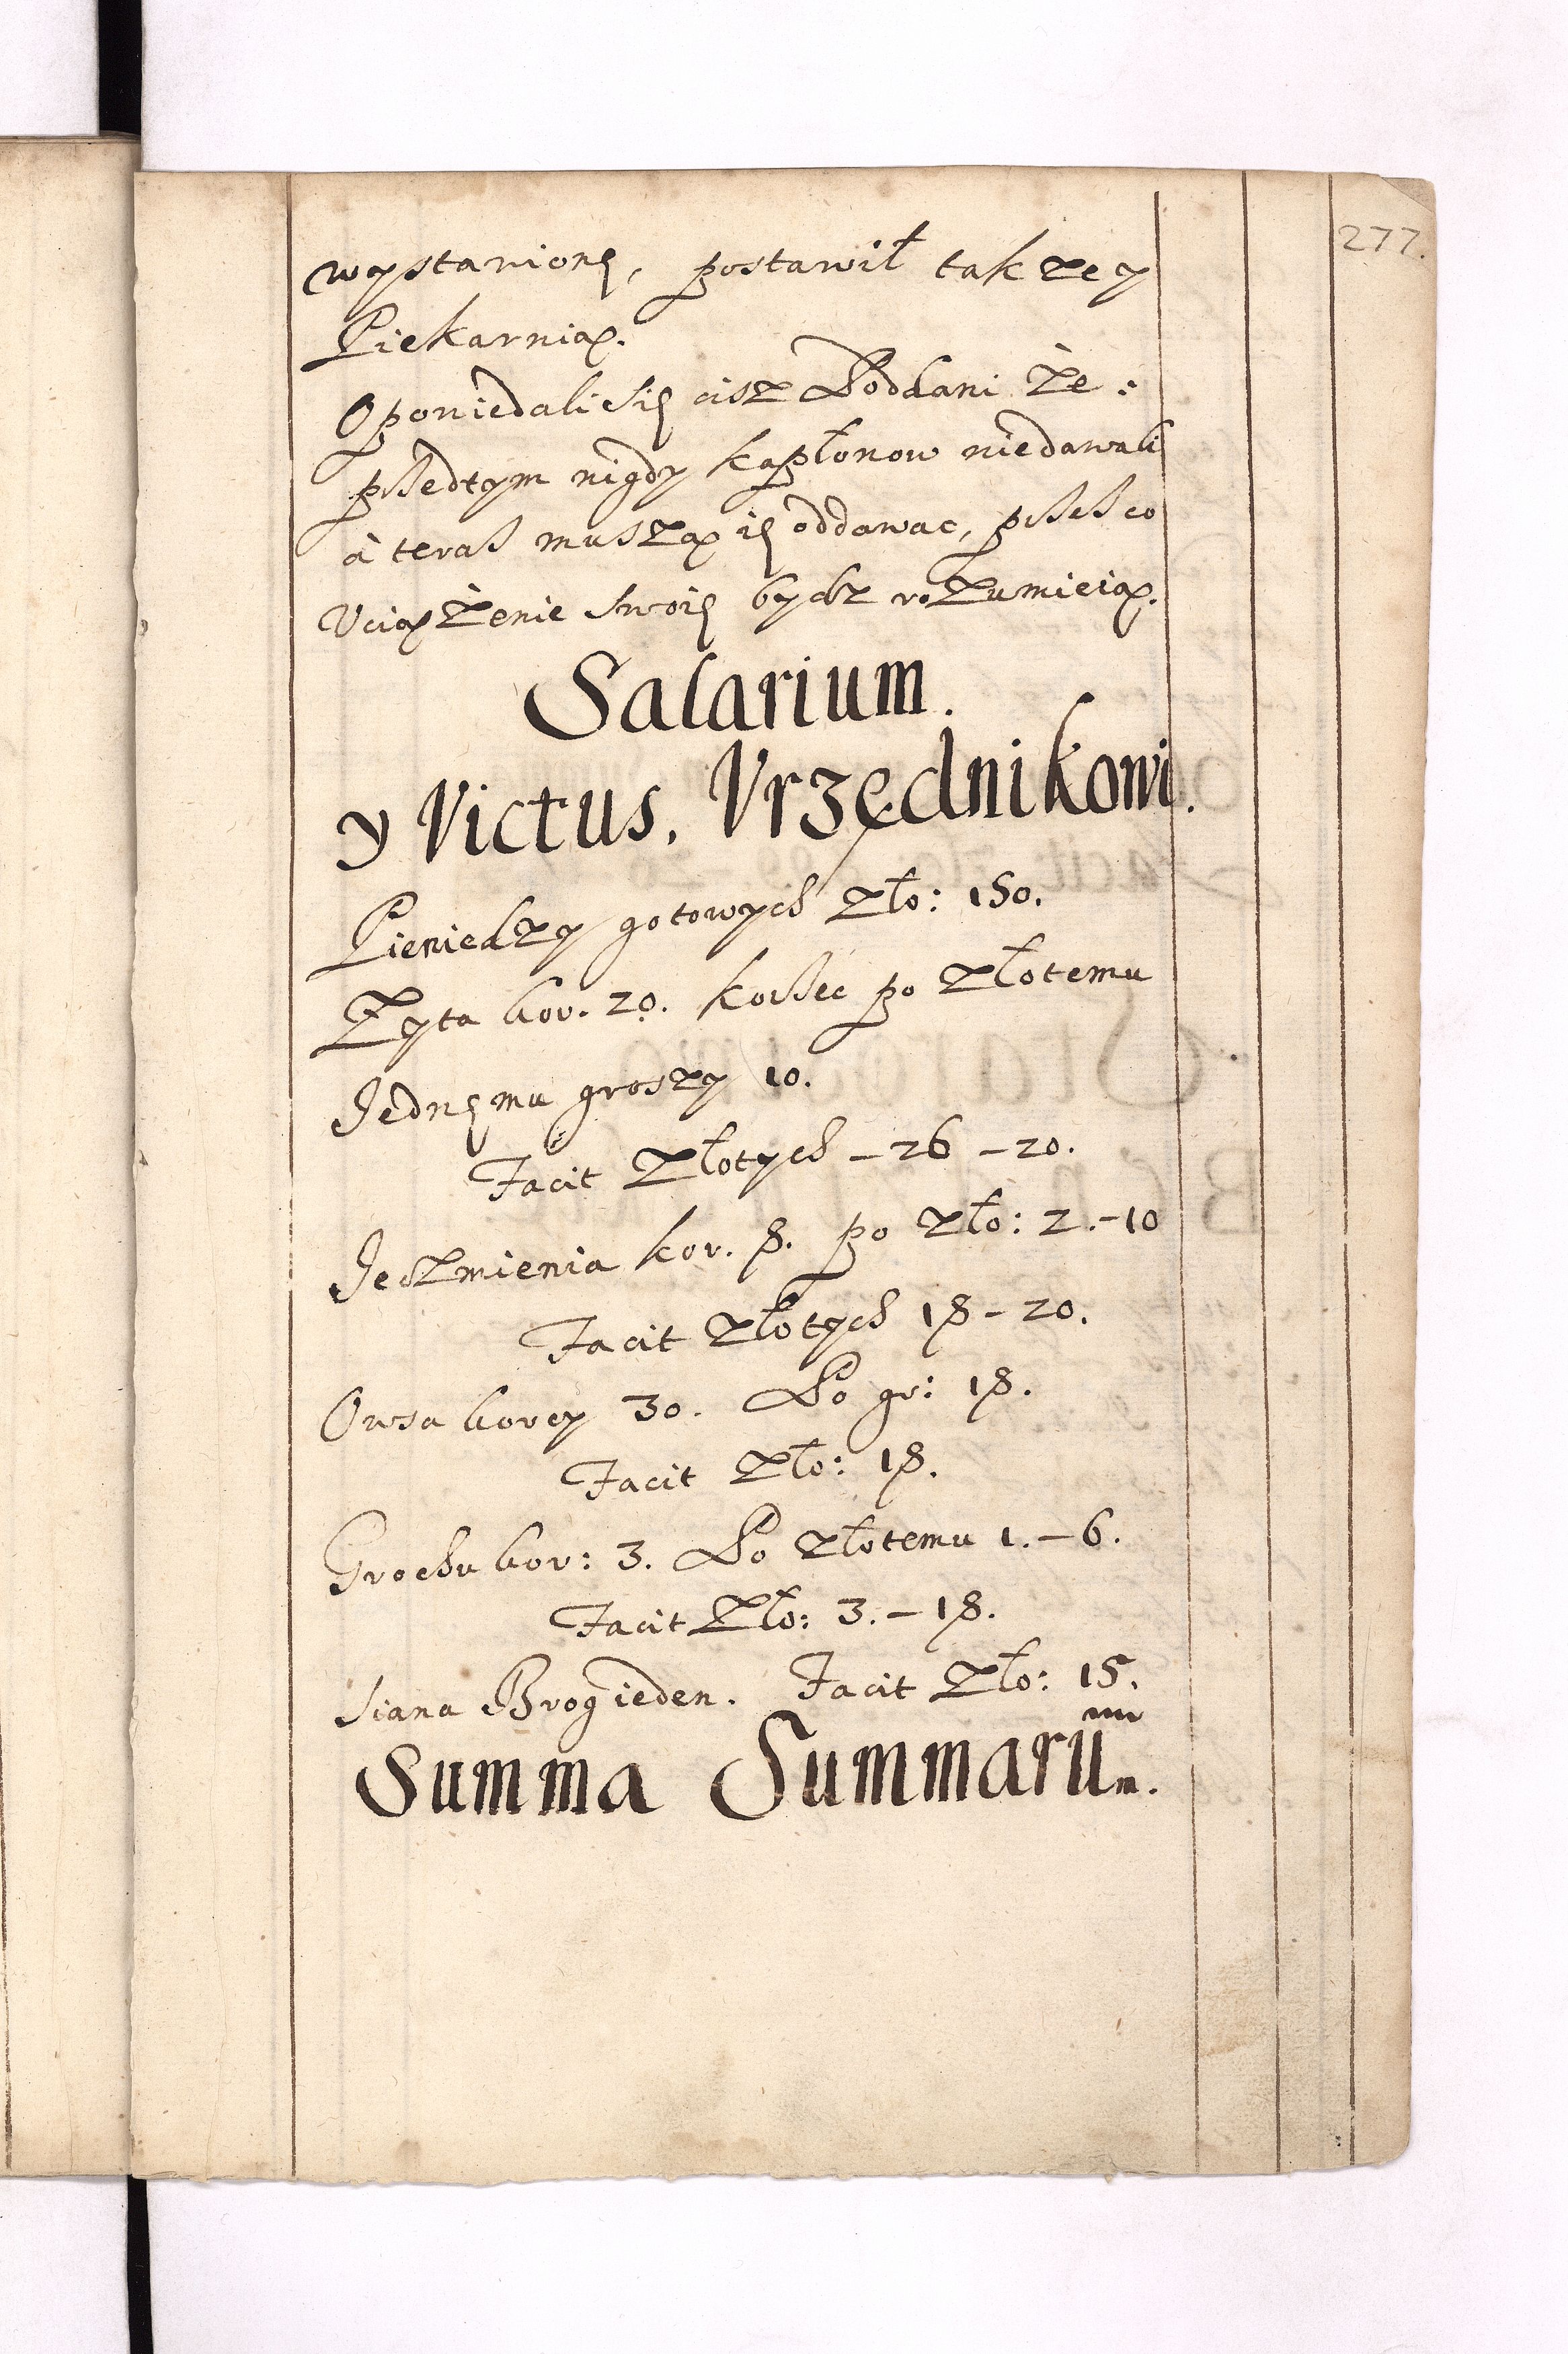 277.
wystawionę, postawił takze y
Piekarnią.
Opowiedali się cisz Poddani że:
pssedtym nigdy kapłonow niedawali
à teras muszą ię oddawac, psses co
Vciążenie swoię bydz rozumieią.
Salarium.
y Victus. Vrzędnikowi.
Pieniedzy gotowych Zło: 150.
Zyta kor. 20. korsec po Złotemu
Jednęmu groszy 10.
Facit Złotych – 26 – 20.
Jeczmienia kor. 8. po Zło: 2.–10
Facit Złotych 18 – 20.
Owsa korcy 30. Po gr: 18.
Facit Zło: 18.
Grochu kor: 3. Po Złotemu 1. – 6.
Facit Zło: 3. – 18.
Siana Brog ieden. Facit Zło: 15.
Summa Summarum.